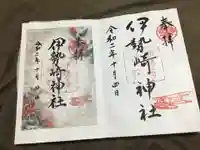 奉拝
伊勢崎神社
令和二年十月四日
奉拝
伊勢崎神社
令和二年十月